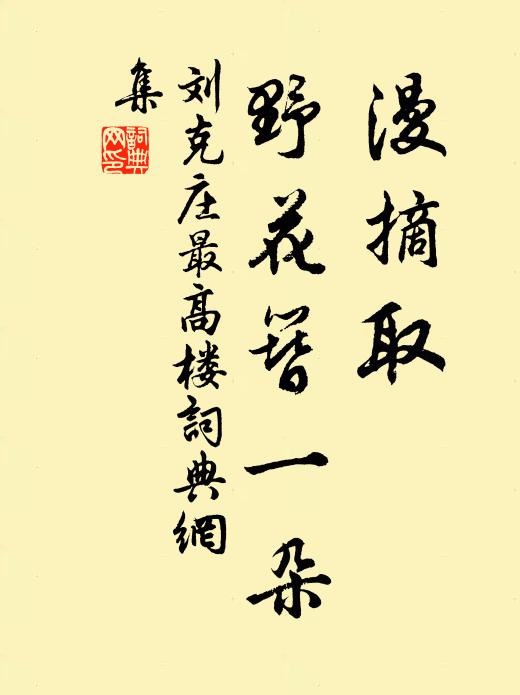 漫摘取
野花簪一朵
刘克庄最高楼詞典網
集
詞典
网印